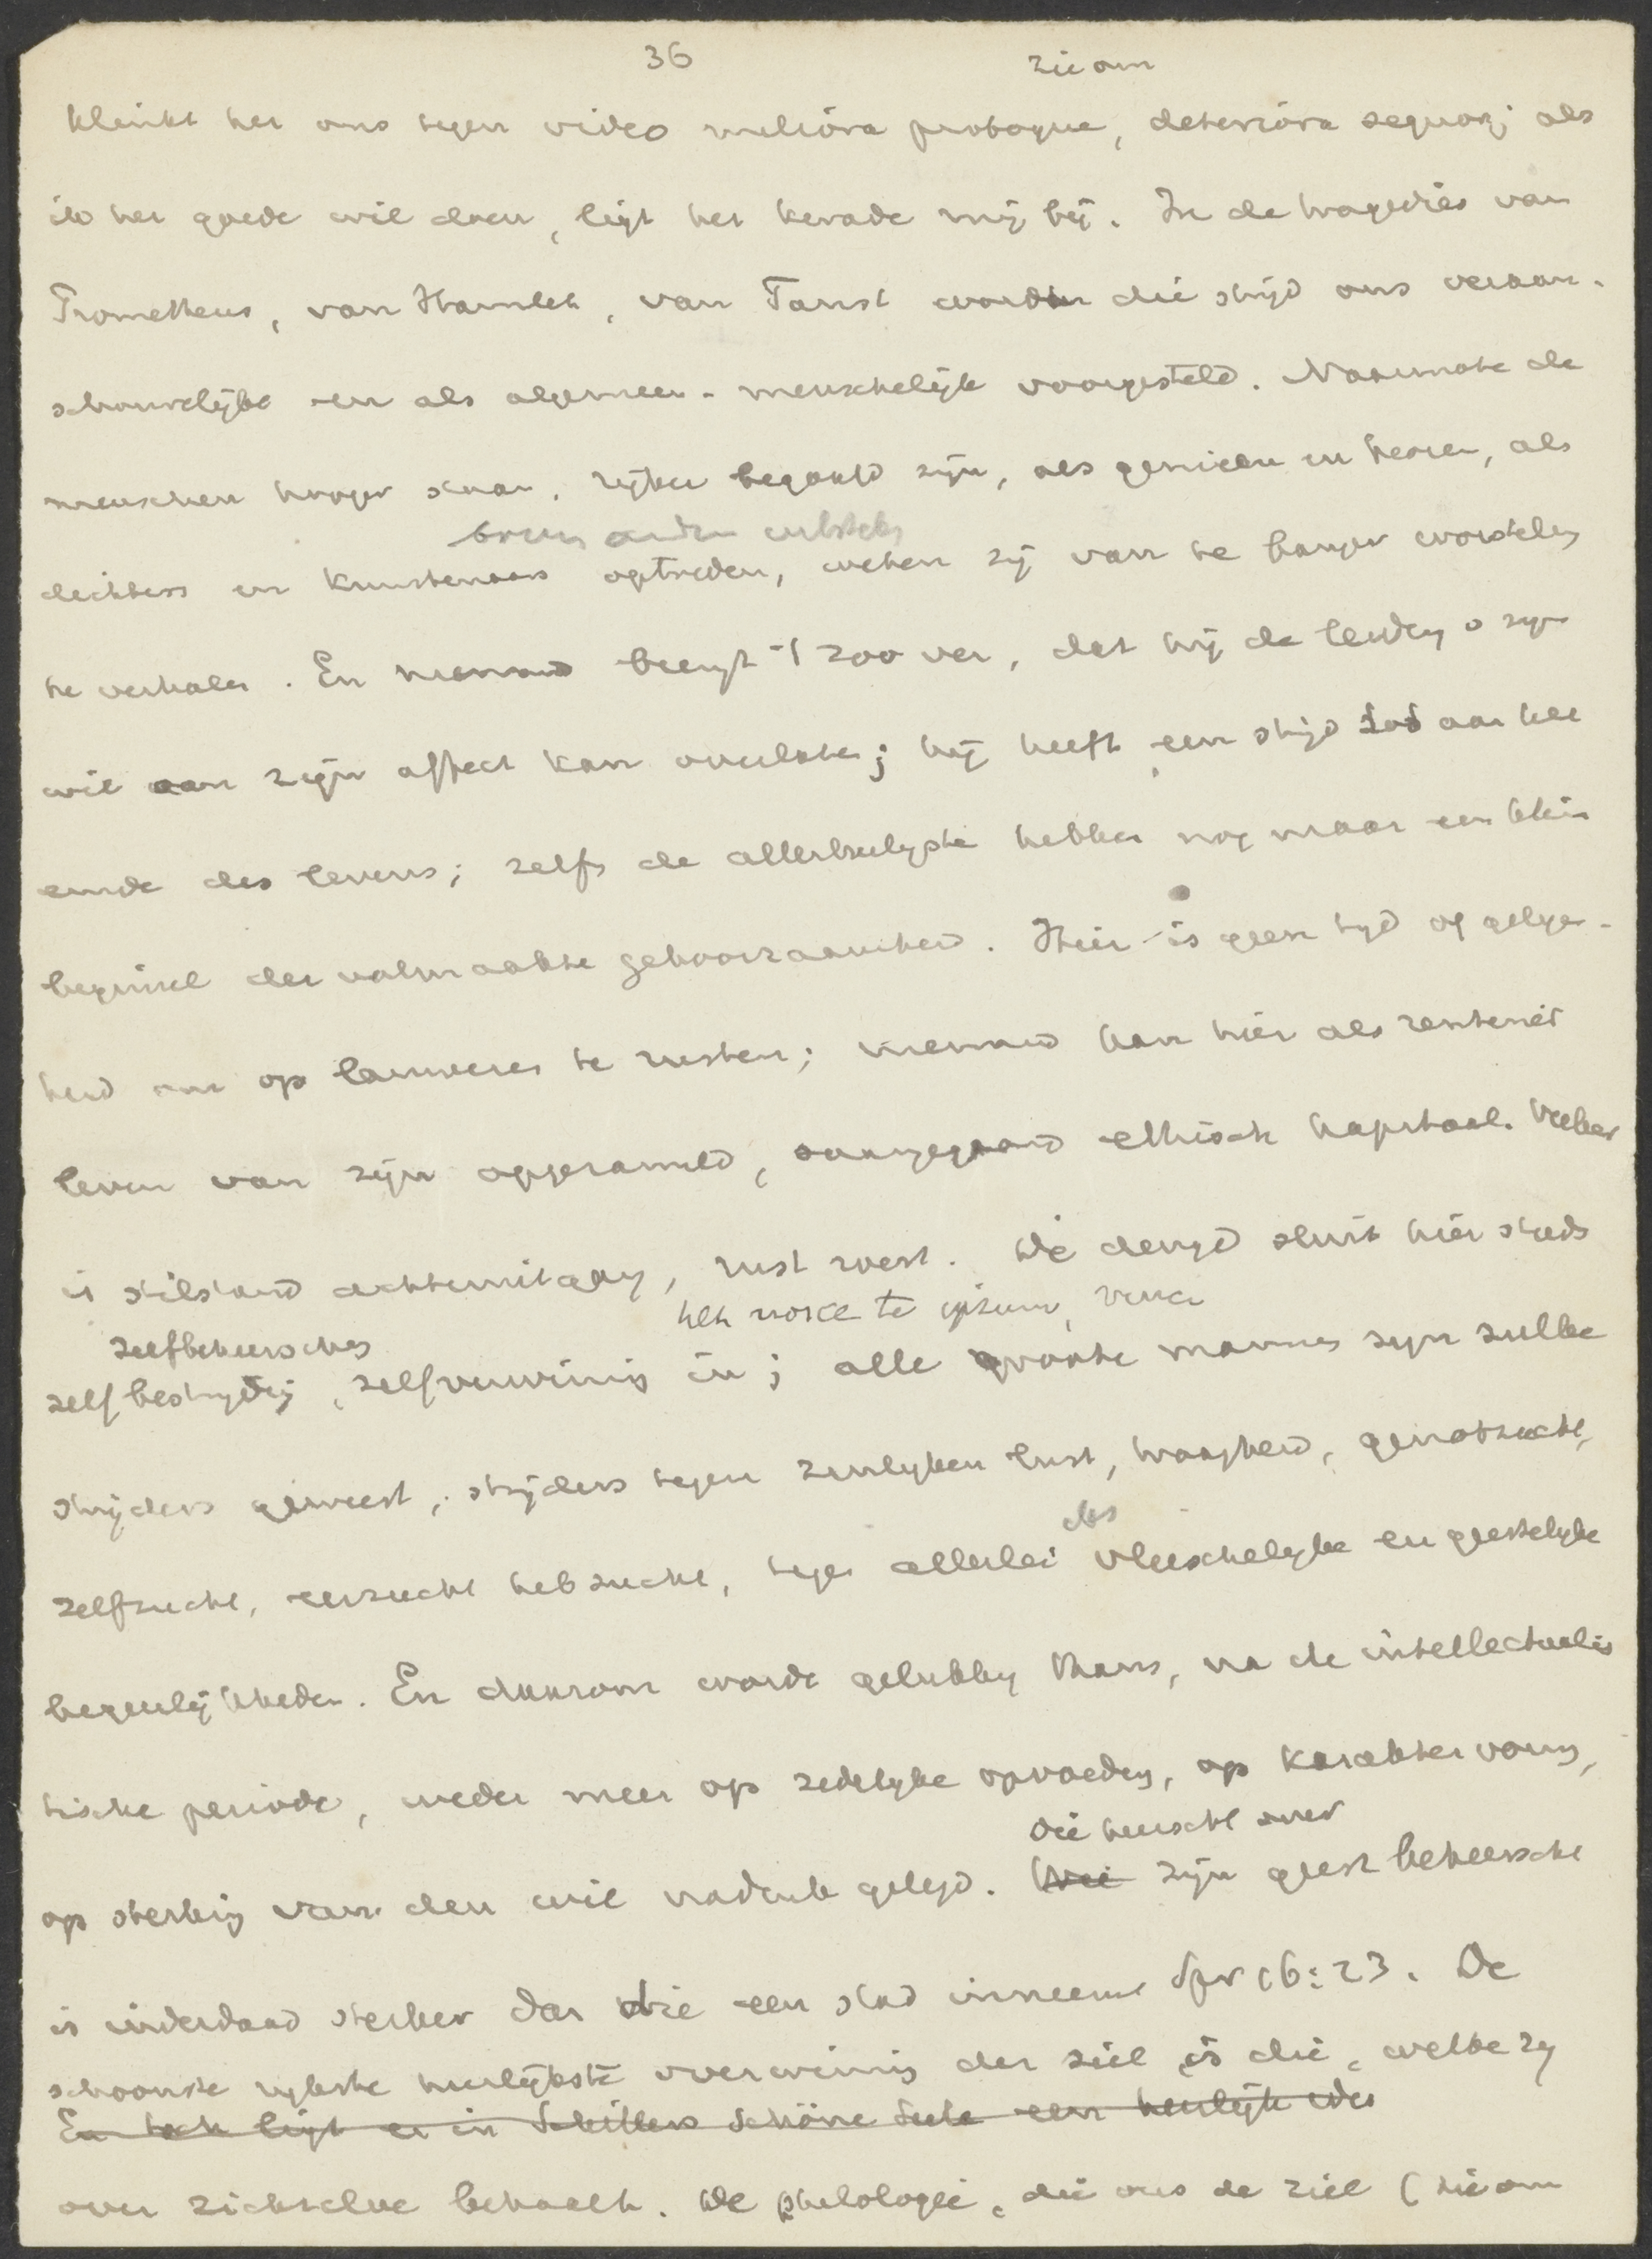 36
zie om
klinkt het ons tegen video meliora proboque, deteriora sequor; als
ik het goede wil doen, ligt het kwade mij bij. In de tragedies van
Prometheus, van Hamlet, van Faust wordt die strijd ons veraan-
schouwelijkt en als algemeen-menschelijk voorgesteld. Naarmate de
menschen hooger staan, rijker begaafd zijn, als genieën en heroen, als
boven anderen uitsteken
dichters en kunstenaars optreden, weten zij van te banger worsteling
te verhalen. En niemand brengt 't zoo ver, dat hij de leiding v zijn
wil aan zijn affect kan overlaten; hij heeft een strijd tot aan het
einde des levens; zelfs de allerheiligste hebben nog maar een klein
beginsel der volmaakte gehoorzaamheid. Hier is geen tijd of gelegen-
heid om op lauweren te rusten; niemand kan hier als rentenier
leven van zijn opgezameld, ethisch kapitaal. Veeleer
is stilstand achteruitgang, rust roest. De deugd sluit hier steeds
zelfbeheersching
het nosce te ipsum, vince
zelfbestrijding, zelfverwinning in; alle groote mannen zijn zulke
strijders geweest, strijders tegen zinlijken lust, traagheid, genotzucht,
zelfzucht, eerzucht hebzucht, tegen allerlei vleeschelijke en geestelijke
des
begeerlijkheden. En daarom worde gelukkig thans, na de intellectualis
tische periode, weder meer op zedelijke opvoeding, op karaktervorming,
op sterking van den wil nadruk gelegd. Wie zijn geest beheerscht
die heerscht over
is inderdaad sterker dan die een stad inneemt Spr 16:23. De
schoonste rijkste heerlijkste overwinning der ziel is die, welke zij
En toch ligt er in Schillers schöne Seele een heerlijk idee
over zichzelve behaalt. De philologie, die ons de ziel (zie om